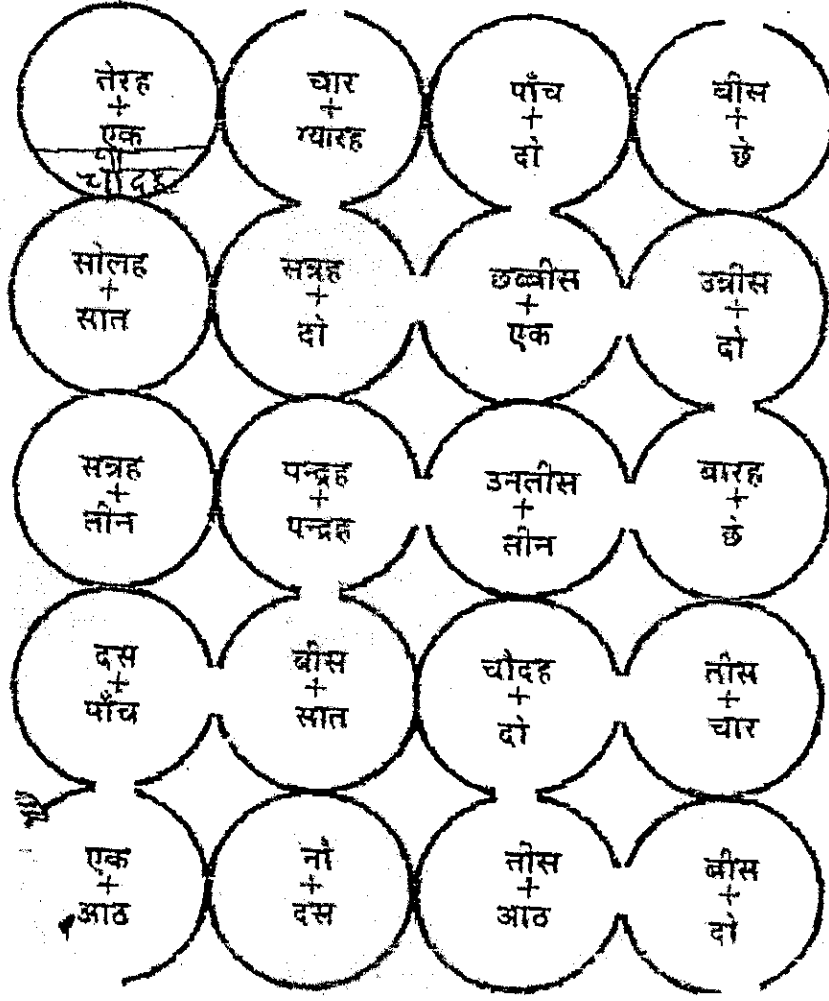 तेरह
+
एक
चौदह
चार
+
ग्यारह
पाँच
+
दो
बीस
+
छे
सोलह
+
सात
सत्रह
+
दो
छब्बीस
+
एक
उन्नीस
+
दो
सत्रह
+
तीन
पन्द्रह
+
पन्द्रह
उनतीस
+
तीन
बारह
+
छे
दस
+
पाँच
बीस
+
सात
चौदह
+
दो
तीस
+
चार
एक
+
आठ
नौ
+
दस
तीस
+
आठ
बीस
+
दो